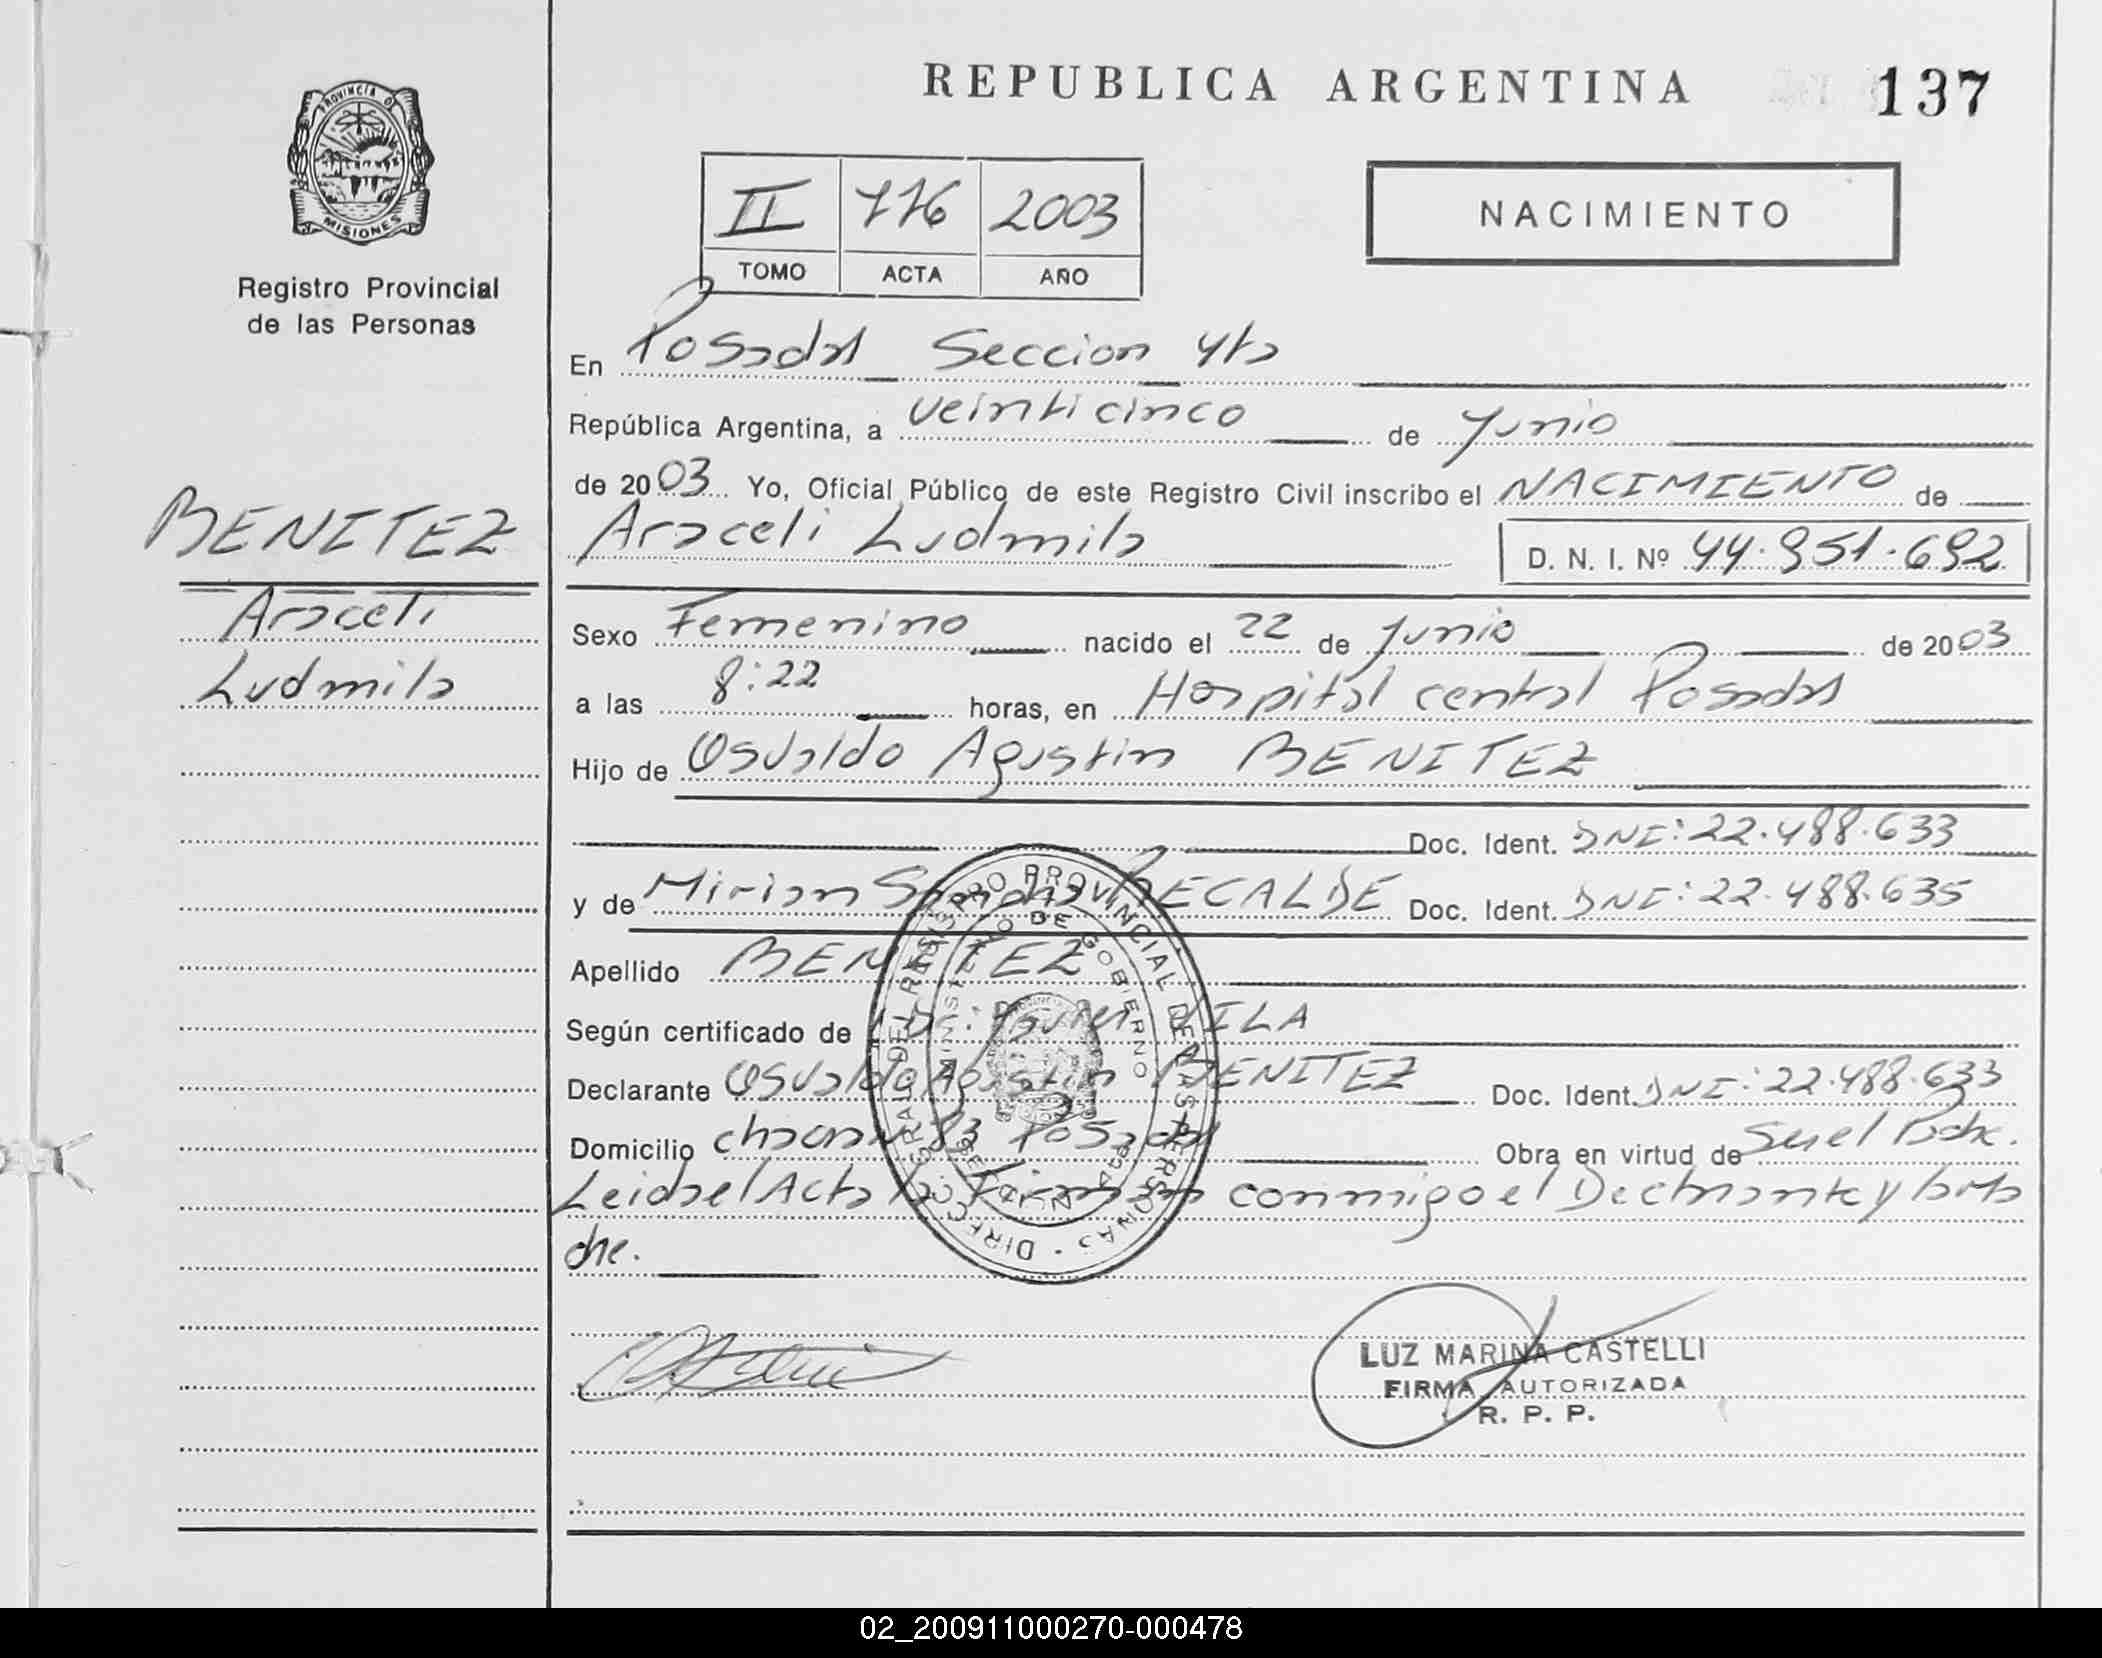 REPUBLICA ARGENTINA
137
PROVINCIA D
MISIONES
Registro Provincial
de las Personas
II 776 2003
TOMO ACTA AÑO
NACIMIENTO
En Posadas Seccion 4ta
República Argentina, a veinticinco de Junio
de 2003 Yo, Oficial Público de este Registro Civil inscribo el NACIMIENTO de
BENITEZ
Araceli
Ludmila
Araceli Ludmila D. N. I. Nº 44.951.692
Sexo Femenino nacido el 22 de Junio de 2003
a las 8:22 horas, en Hospital central Posadas
Hijo de Osvaldo Agustin BENITEZ
Doc. Ident. DNI: 22.488.633
y de Mirian Sandra RECALDE Doc. Ident. DNI: 22.488.635
Apellido BENITEZ
Según certificado de Dr. Javier VILA
Declarante Osvaldo Agustin BENITEZ Doc. Ident. DNI: 22.488.633
Domicilio chacra 83 Posadas Obra en virtud de Ser el Padre.
Leida el Acta la Firman conmigo el Declarante y la Ma
dre.
DIRECC. GRAL. DEL REGISTRO PROVINCIAL DE LAS PERSONAS
MINISTERIO DE GOBIERNO
LUZ MARINA CASTELLI
FIRMA AUTORIZADA
R. P. P.
02_200911000270-000478